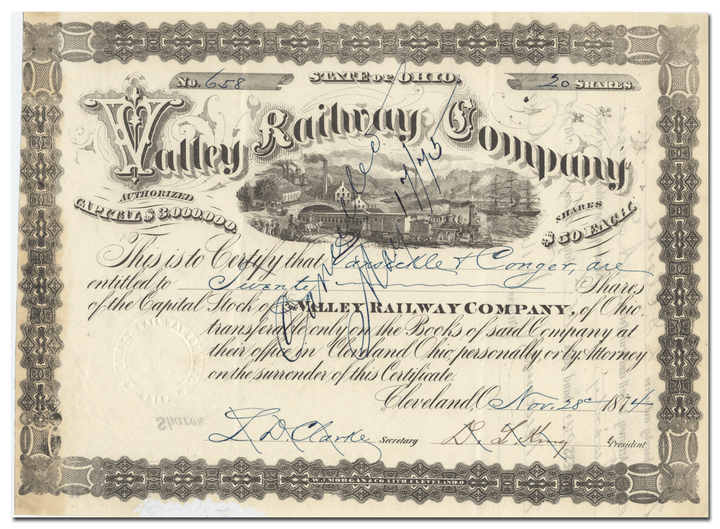 No. 658
STATE OF OHIO.
20 SHARES
Valley Railway Company
AUTHORIZED
CAPITAL $3,000,000.
SHARES
$50 EACH.
This is to Certify that Vansickle & Conger, are
entitled to Twenty Shares
of the Capital Stock of the VALLEY RAILWAY COMPANY, of Ohio.
transferable only on the Books of said Company at
their office in Cleveland Ohio, personally, or by Attorney
on the surrender of this Certificate.
Cleveland, O. Nov. 28 1874
Cancelled
Secretary
D. L. King President
W.J. MORGAN & CO. LITH. CLEVELAND. O.
Shares